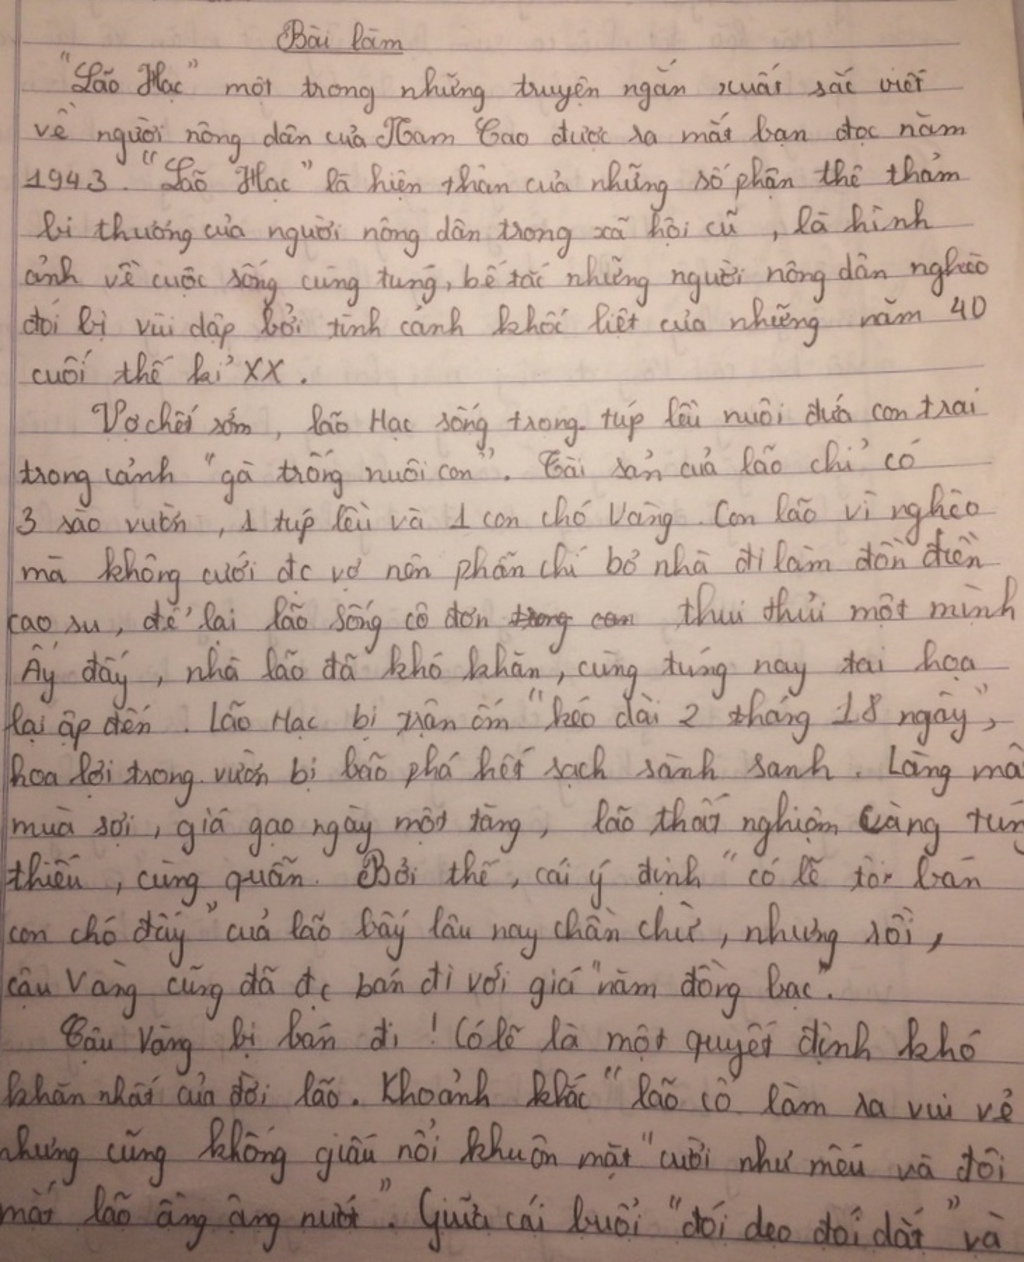 Bài làm
"Lão Hạc" một trong những truyện ngắn xuất sắc viết
về người nông dân của Nam Cao được ra mắt bạn đọc năm
1943. "Lão Hạc" là hiện thân của những số phận thê thảm
bi thương của người nông dân trong xã hội cũ, là hình
ảnh về cuộc sống cùng túng, bế tắc những người nông dân nghèo
đói bị vùi dập bởi tình cảnh khốc liệt của những năm 40
cuối thế kỉ XX.
Vợ chết sớm, lão Hạc sống trong túp lều nuôi đứa con trai
trong cảnh "gà trống nuôi con". Tài sản của lão chỉ có
3 sào vườn, 1 túp lều và 1 con chó Vàng. Con lão vì nghèo
mà không cưới đc vợ nên phẫn chí bỏ nhà đi làm đồn điền
cao su, để lại lão sống cô đơn trong can thui thủi một mình
Ấy đấy, nhà lão đã khó khăn, cùng túng nay tai họa
lại ập đến. Lão Hạc bị trận ốm "kéo dài 2 tháng 18 ngày",
hoa lợi trong vườn bị bão phá hết sạch sành sanh. Làng mất
mùa sợi, giá gạo ngày một tăng, lão thất nghiệm càng tún
thiếu, cùng quẫn. Bởi thế, cái ý định "có lẽ tôi bán
con chó đấy" của lão bấy lâu nay chần chừ, nhưng rồi,
cậu Vàng cũng đã đc bán đi với giá "năm đồng bạc".
Cậu Vàng bị bán đi! Có lẽ là một quyết định khó
khăn nhất của đời lão. Khoảnh khắc "lão cố làm ra vui vẻ
nhưng cũng không giấu nổi khuôn mặt "cười như mếu và đôi
mắt lão ầng ậng nước". Giữa cái buổi "đói deo đói dắt" và